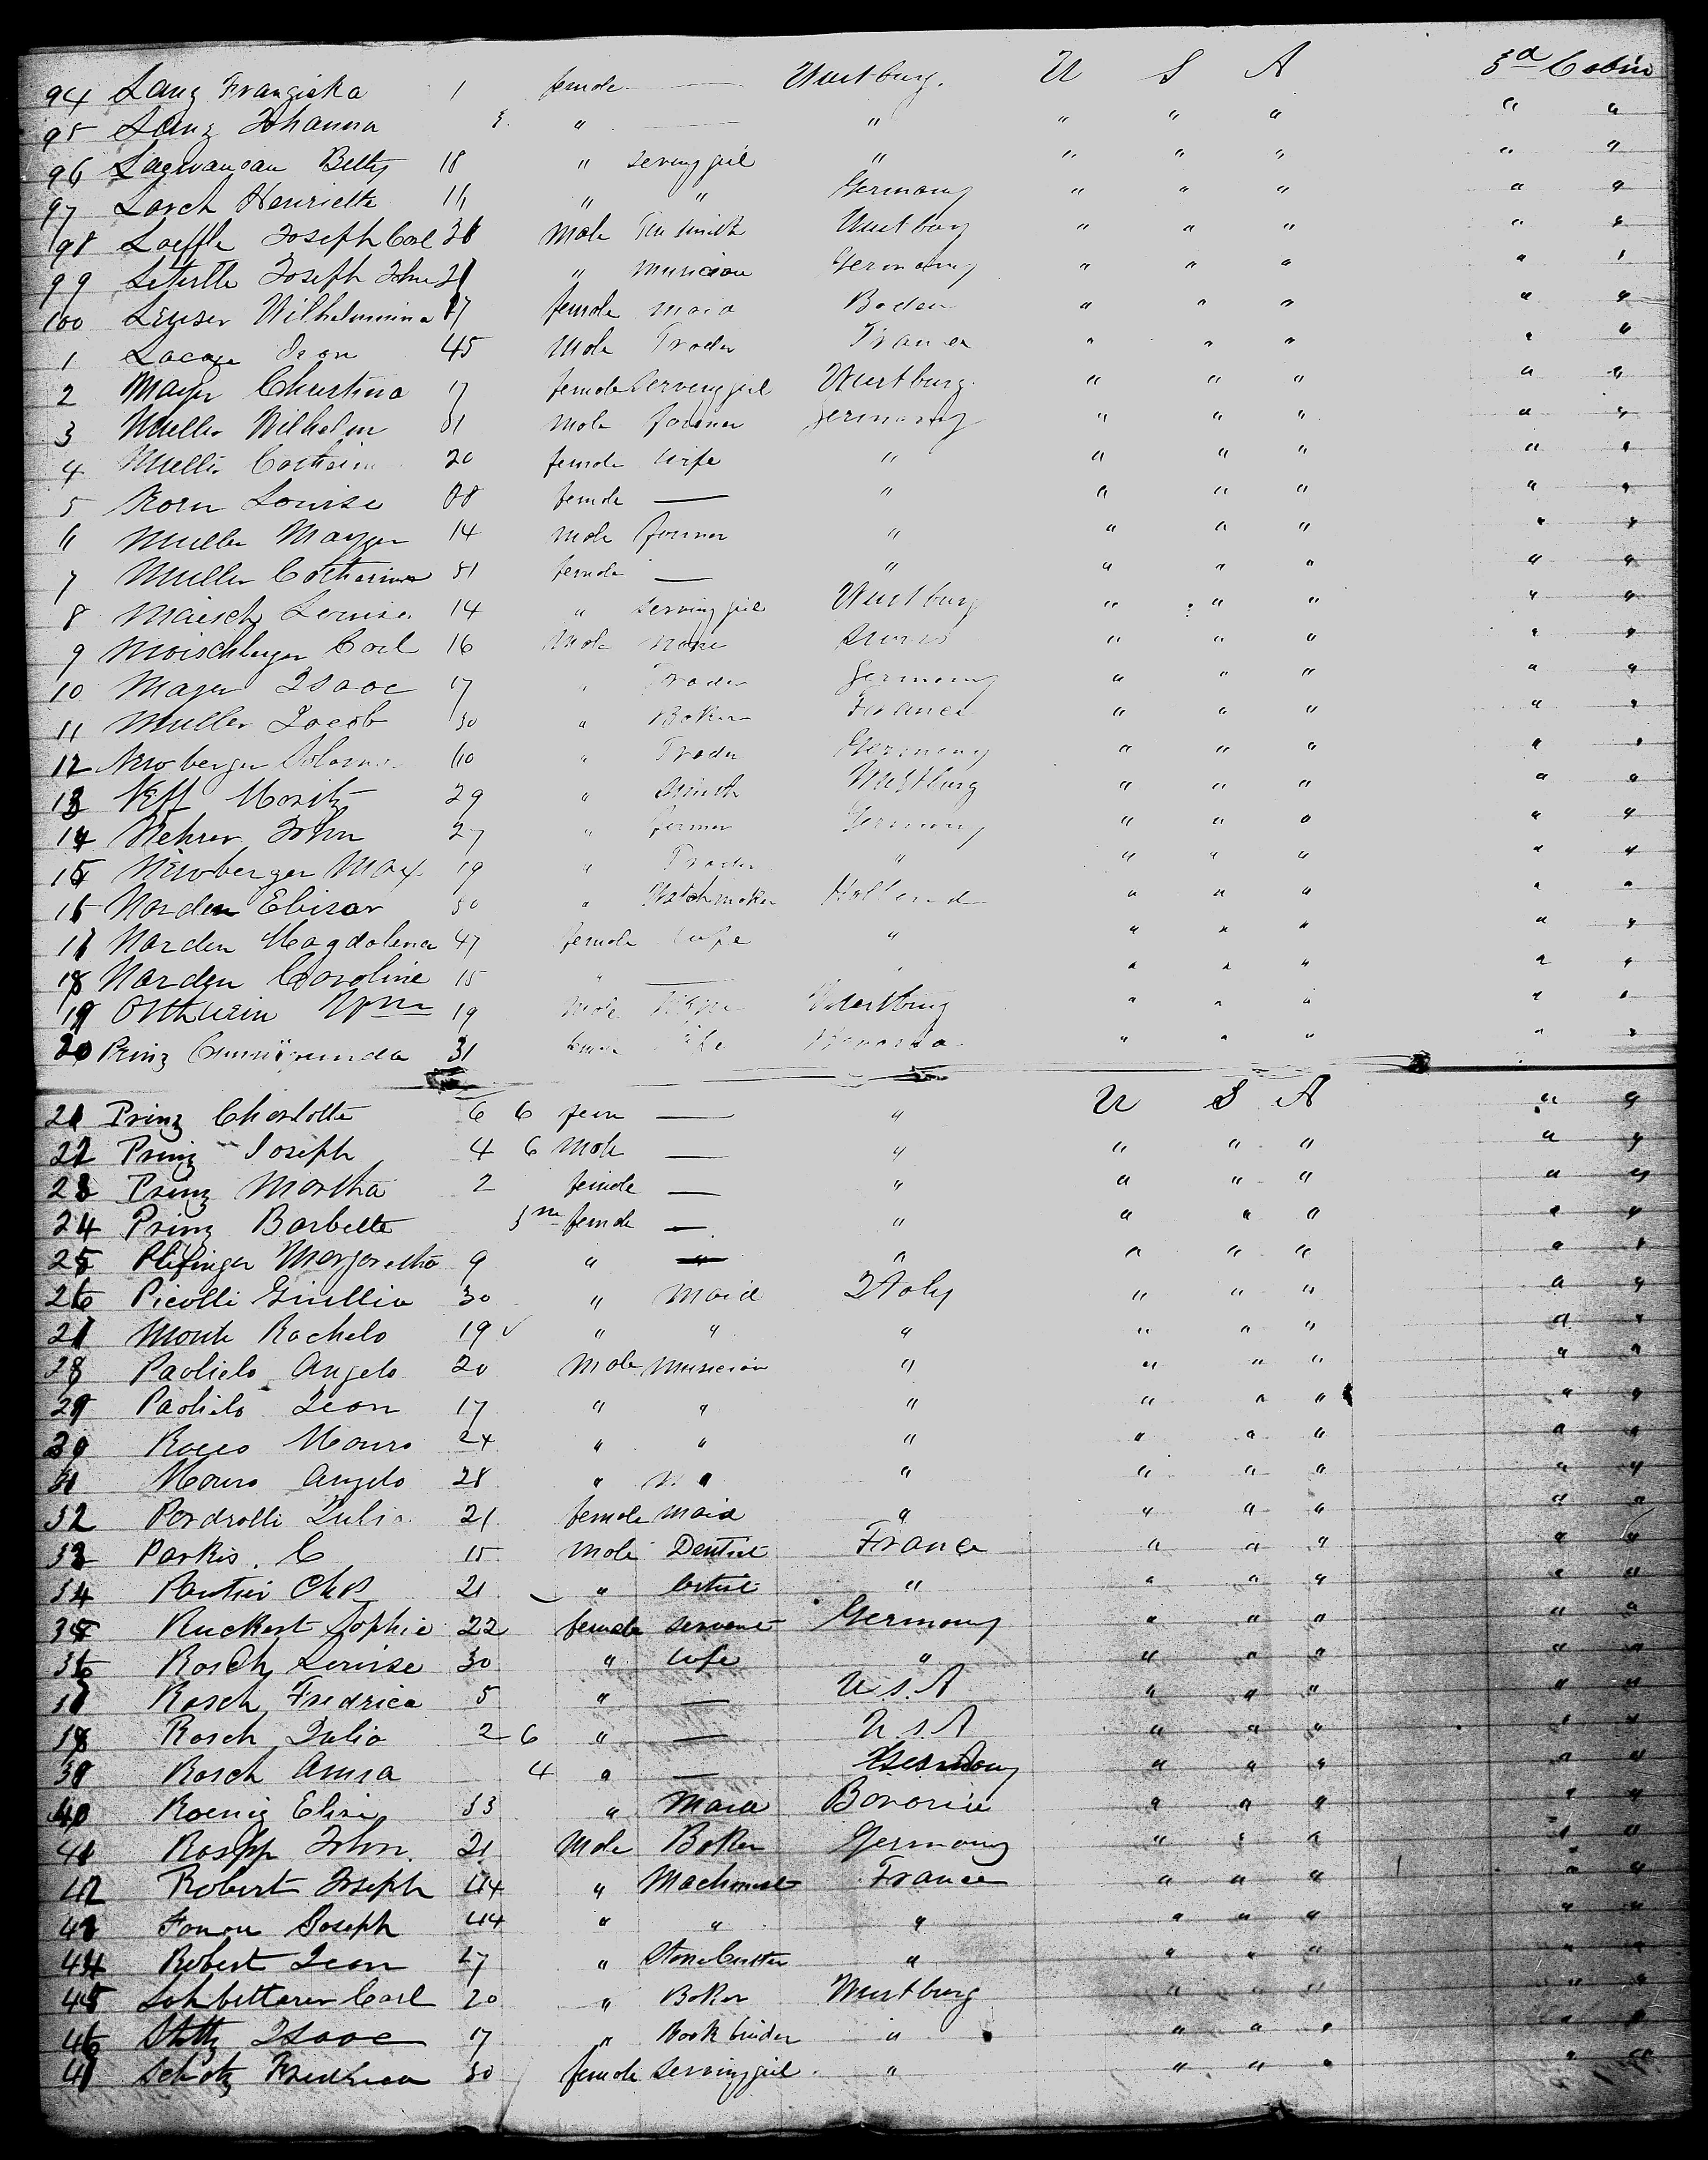 94 Lang Franziska 1 female — Wurtburg. U S A 3d Cabin
95 Lanz Johanna " — " " " " " "
96 Betty 18 " serving girl " " " " " "
97 Lorch Henriette 16 " " Germany " " " " "
98 Loeffle Joseph Carl 38 male Tin smith Wurtburg " " " " "
99 Joseph John 21 " musician Germany " " " " "
100 Leuser Wilhelmina 17 female maid Baden " " " " "
1 Lacaze Jean 45 male Trader France " " " " "
2 Mayer Christina 17 female serving girl Wurtburg. " " " " "
3 Muller Wilhelm 31 male farmer Germany " " " " "
4 Muller 20 female wife " " " " " "
5 Korn Louise female — " " " " " "
6 Muller 14 male farmer " " " " " "
7 Muller Catharina 51 female — " " " " " "
8 Maisch Louise 14 " serving girl Wurtburg " " " " "
9 Carl 16 male none " " " " "
10 Mayer Isaac 17 " Trader Germany " " " " "
11 Muller Jacob 30 " Baker France " " " " "
12 New berger 60 " Trader Germany " " " " "
13 Neff Moritz 29 " Smith Wurtburg " " " " "
14 Nehrer John 27 " farmer Germany " " " " "
15 Newberger Max 19 " Trader " " " " " "
16 Norden 50 " Watchmaker Holland " " " " "
17 Norden Magdalena 47 female wife " " " " " "
18 Norden Caroline 15 " — " " " " "
19 Wm 19 male Wurtburg " " " " "
20 Prinz 31 wife Bavaria " " " " "
21 Prinz Charlotte 6 6 fem — " U S A " "
22 Prinz Joseph 4 6 male — " " " " " "
23 Prinz Martha 2 female — " " " " " "
24 Prinz Barbette 3 m female — " " " " " "
25 Margaretha 9 " " " " " " " "
26 Picolli Giullia 30 " maid Italy " " " " "
27 Monte Rachelo 19 " " " " " " " "
28 Paolielo Angelo 20 male musician " " " " " "
29 Paolielo Jean 17 " " " " " " " "
30 Rocco Mauro 24 " " " " " " " "
31 Mauro Angelo 28 " " " " " " " "
32 Pordrolli Julia 21 female maid " " " " " "
33 Parkis. C 15 male Dentist France " " " " "
34 21 " Artist " " " " " "
35 Ruckert Sophie 22 female servant Germany " " " " "
36 Rosch Louise 30 " wife " " " " " "
37 Rosch Fredrica 5 " — U.S.A " " " " "
38 Rosch Julia 2 6 " — U S A " " " " "
39 Rosch Anna 4 " — Germany " " " " "
40 Koenig Elise 33 " Maid Bavaria " " " " "
41 Rosopp John. 21 Male Baker Germany " " " " "
42 Robert Joseph 44 " Machinist France " " " " "
43 Joseph 44 " " " " " " " "
44 Robert Jean 27 " Stone Cutter " " " " " "
45 Carl 20 " Baker Wurtburg " " " " "
46 Isaac 17 " Book binder " " " " " "
47 Schotz 30 female serving girl " " " " " "